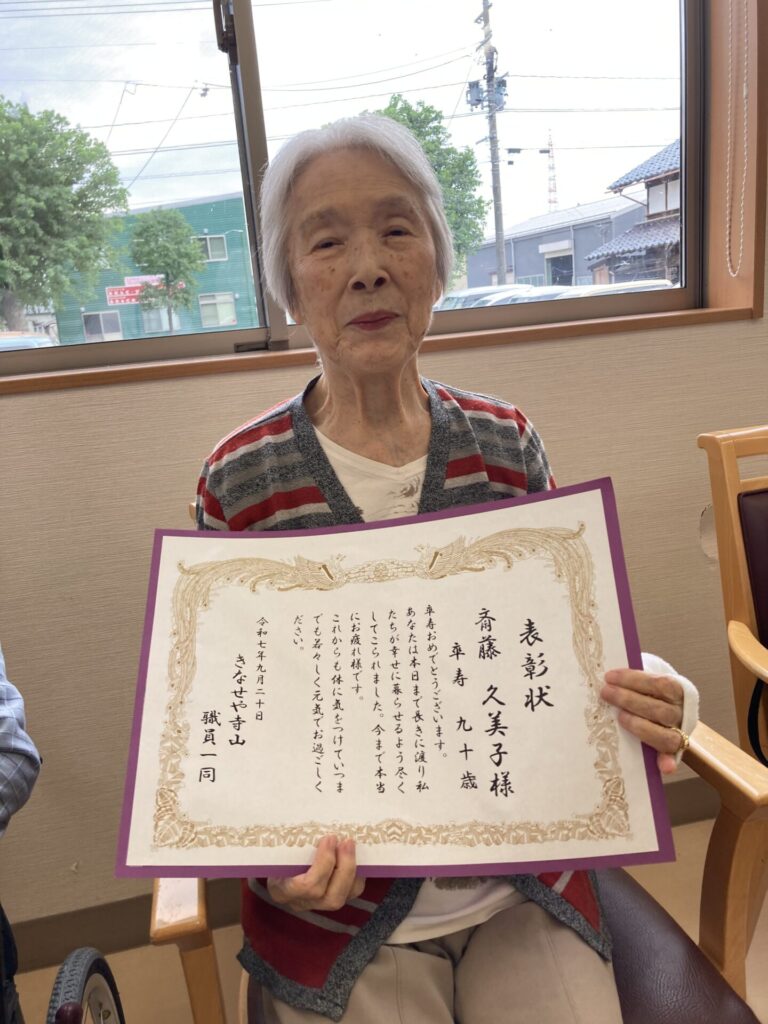 表彰状
斉藤 久美子様
卒寿 九十歳
卒寿おめでとうございます。
あなたは本日まで長きに渡り私
たちが幸せに暮らせるよう尽く
してこられました。今まで本当
にお疲れ様です。
これからも体に気をつけていつま
でも若々しく元気でお過ごしく
ださい。
令和七年九月二十日
きなせや寺山
職員一同